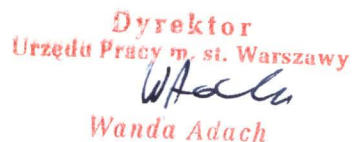 Dyrektor
Urzędu Pracy m. st. Warszawy
WAdach
Wanda Adach